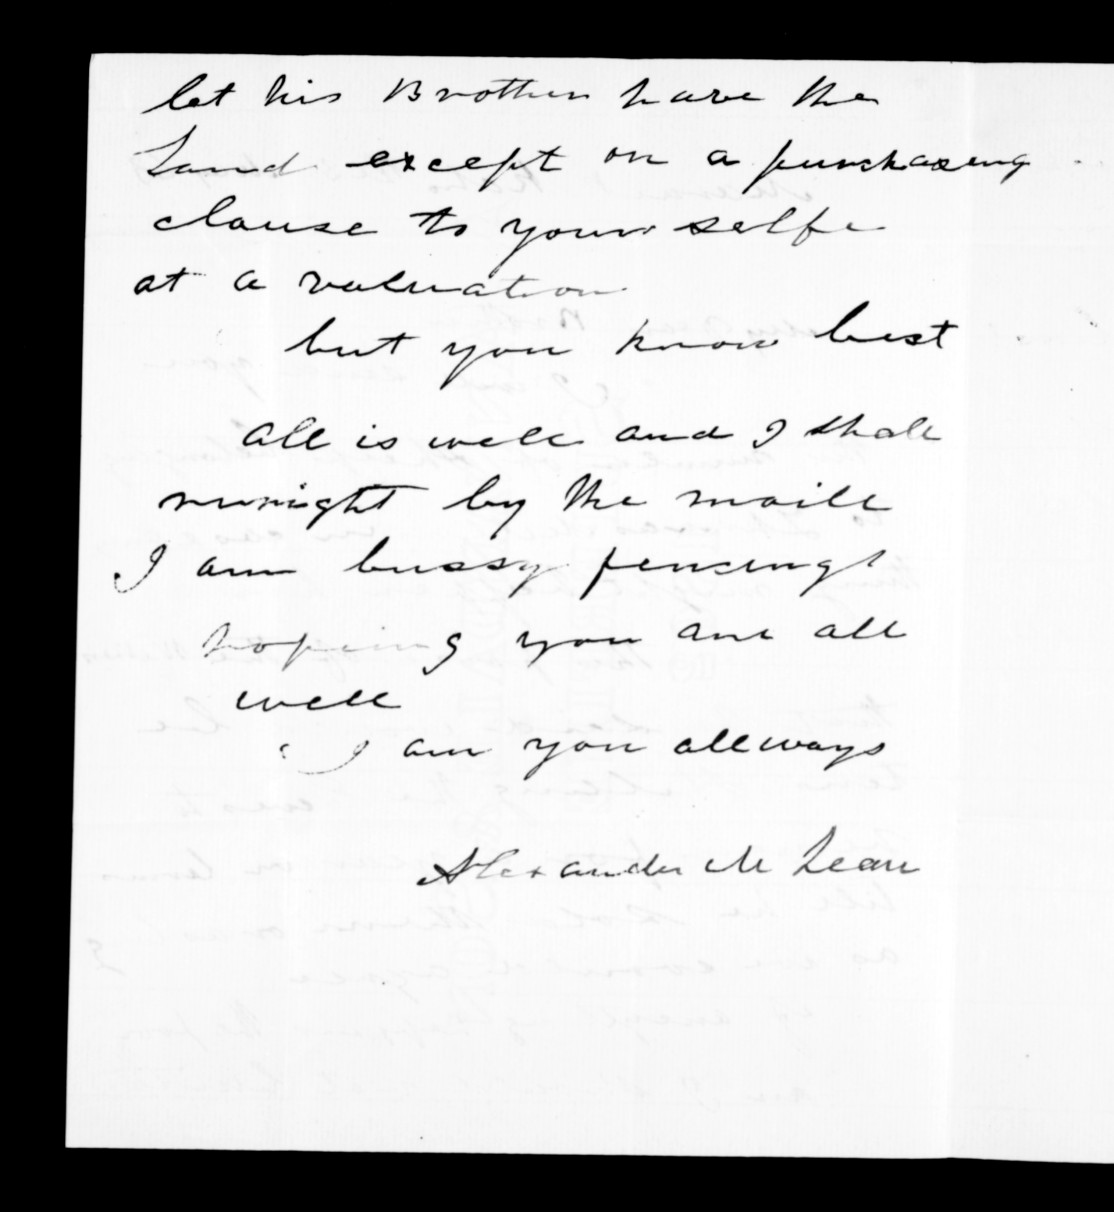 let his Brother have the
Land except on a purchasing
clause to your selfe
at a valuation
but you know best
all is well and I shall
wright by the maill
I am bussy fencing
hoping you are all
well
I am you allways
Alexander McLean